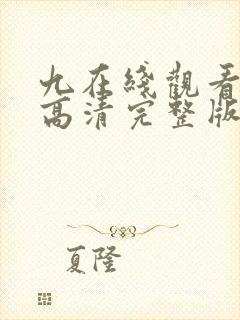 九在綫觀看
高清完整版
夏隆